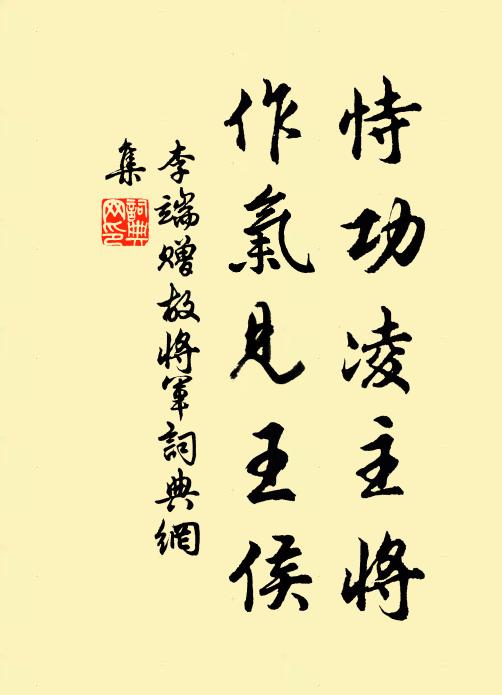 恃功凌主將
作氣見王侯
李端贈故將軍詞典網
集
詞典
网印